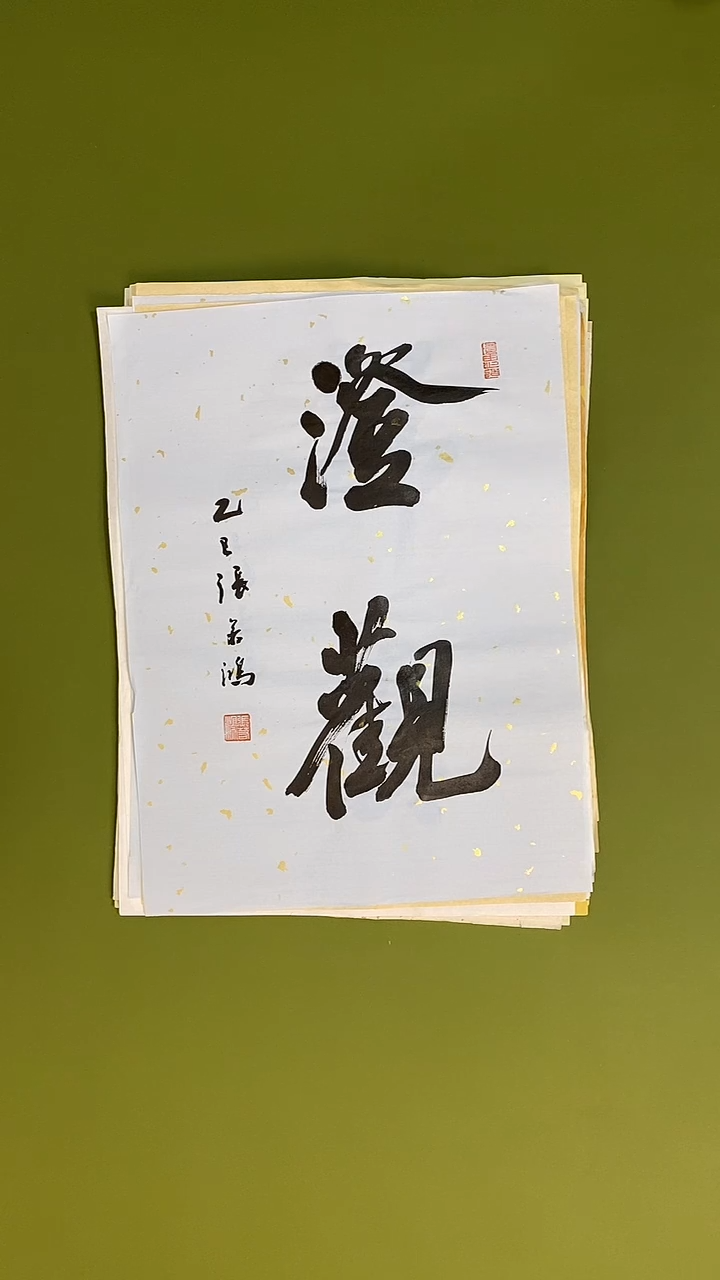 澄觀
乙巳張若鴻